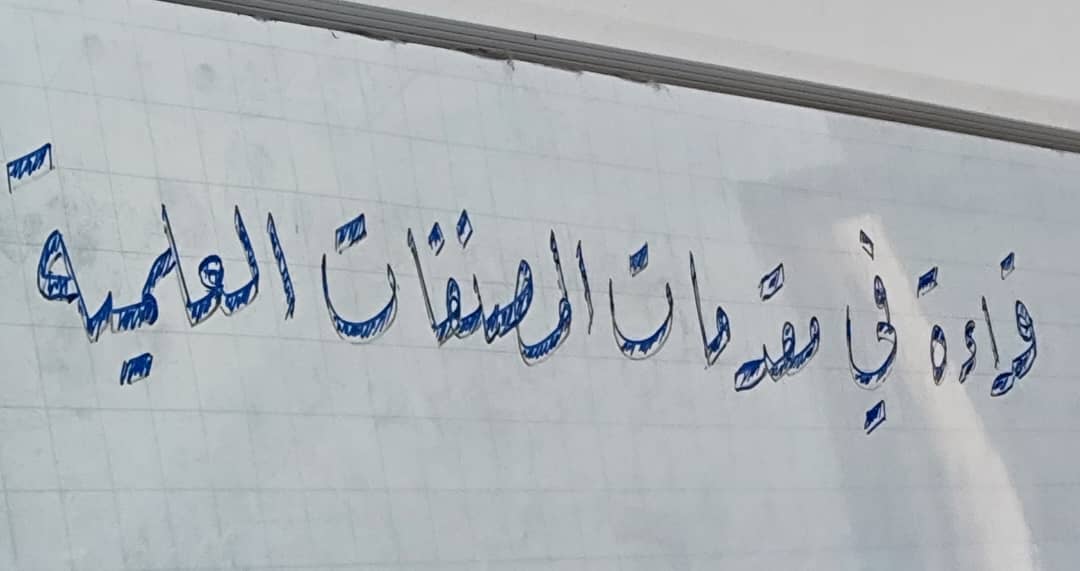 قراءة في مقدمات المصنفات العلمية